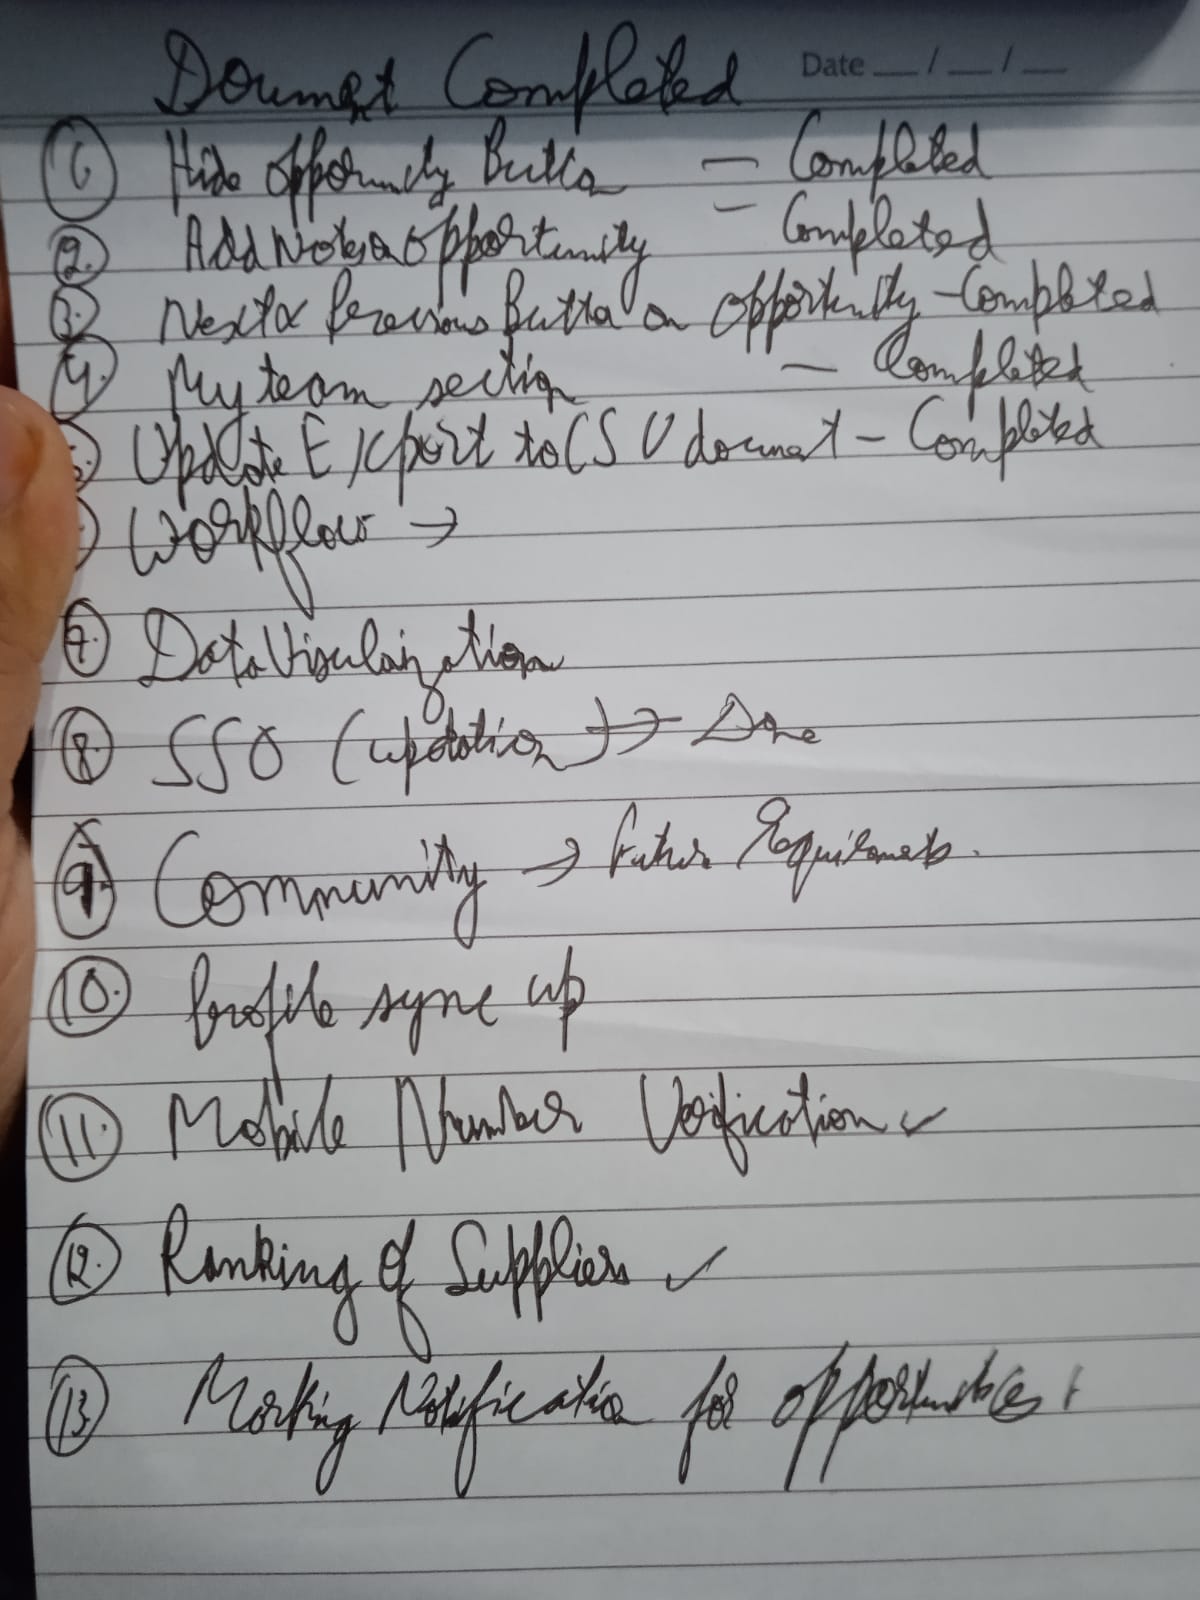 Doument Completed Date __/__/__
① Hide Opportunity Button - Completed
2. Add Notes on Opportunity - Completed
3. Next & Previous Button on Opportunity - Completed
4. My team section - Completed
Update Export to CSV doument - Completed
Workflow →
7. Data Visulaization
8. SSO (updation) → Done
9. Community → Future Requirements.
10. Profile sync up
11. Mobile Number Verification ✓
12. Ranking of Suppliers ✓
13. Marking Notification for opportunities